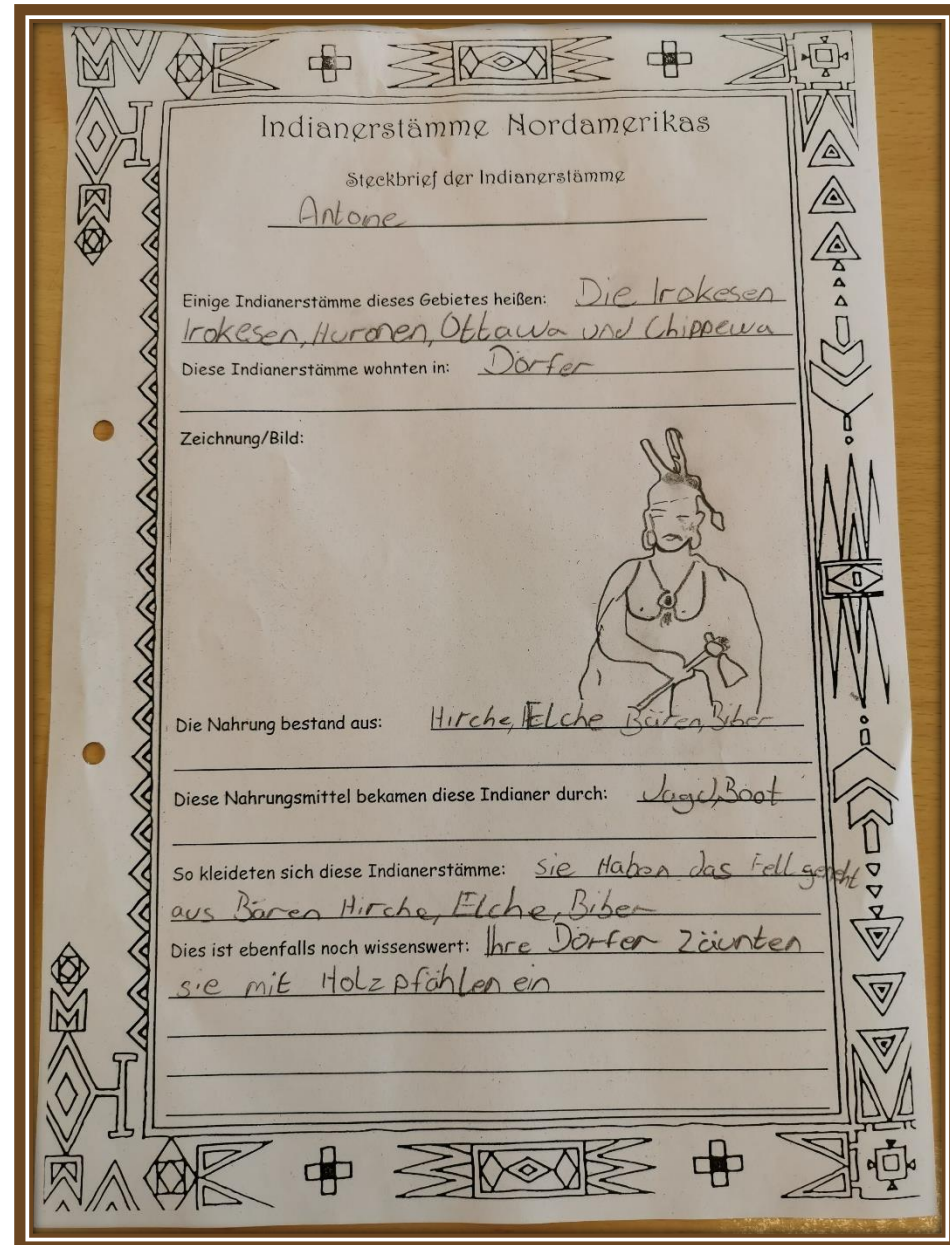 Indianerstämme Nordamerikas
Steckbrief der Indianerstämme
Antone
Einige Indianerstämme dieses Gebietes heißen: Die Irokesen
Irokesen, Huronen, Ottawa und Chippewa
Diese Indianerstämme wohnten in: Dörfer
Zeichnung/Bild:
Die Nahrung bestand aus: Hirche, Elche Bären, Biber
Diese Nahrungsmittel bekamen diese Indianer durch: Jagd, Boot
So kleideten sich diese Indianerstämme: sie Haben das Fell
aus Bären Hirche, Elche, Biber
Dies ist ebenfalls noch wissenswert: Ihre Dörfer Zäunten
sie mit Holzpfählen ein